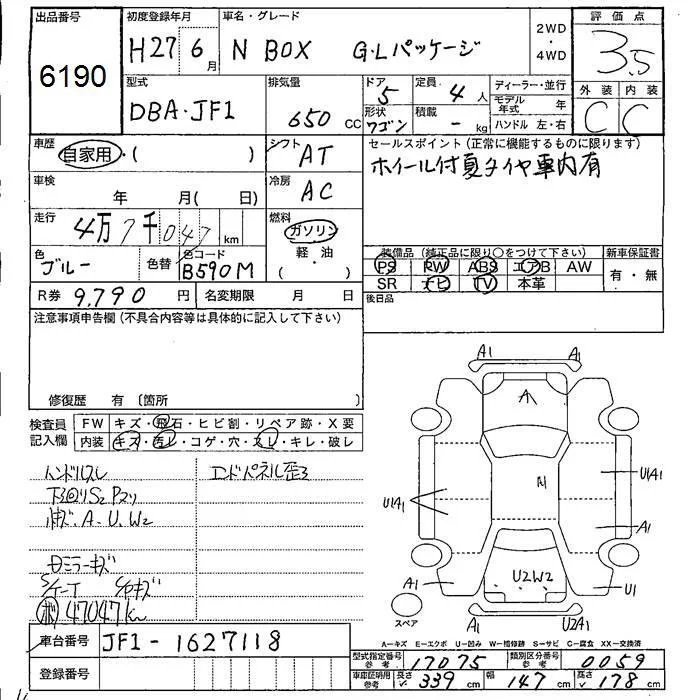 出品番号
6190
初度登録年月
H27 6月
車名・グレード
N BOX G・Lパッケージ
2WD
・
4WD
評価点
3.5
外装 内装
C C
型式
DBA・JF1
排気量
650 CC
ドア
5
形状
ワゴン
定員
4人
積載
- kg
ディーラー・並行
モデル年式 年
ハンドル 左・右
車歴
自家用・( )
シフト
AT
車検
年 月( 日)
冷房
AC
走行
4万7千047 km
燃料
ガソリン
軽・油
( )
色
ブルー
色替
色コード
B590M
R券 9,790 円
名変期限 月 日
セールスポイント(正常に機能するものに限ります)
ホイール付夏タイヤ車内有
装備品(純正品に限り○をつけて下さい)
PS RW ABS エアB AW
SR ナビ TV 本革
新車保証書
有・無
後日品
注意事項申告欄(不具合内容等は具体的に記入して下さい)
修復歴 有〔箇所 〕
検査員
記入欄
FW キズ・飛石・ヒビ割・リペア跡・X要
内装 キズ・汚レ・コゲ・穴・スレ・キレ・破レ
ハンドルスレ
下廻りS2 Pスリ
エンドパネル歪ミ
A.U.W2
ミラーキズ
47047km
A1 A1
A
U1A1
U1A1
A1
A1
U2W2
U1
A1 U2A1
スペア
A-キズ E-エクボ U-凹み W-補修跡 S-サビ C-腐食 XX-交換済
車台番号 JF1-1627118
登録番号
型式指定番号
参考
17075
類別区分番号
参考
0059
車庫証明用
参考
長さ 339 cm
幅 147 cm
高さ 178 cm